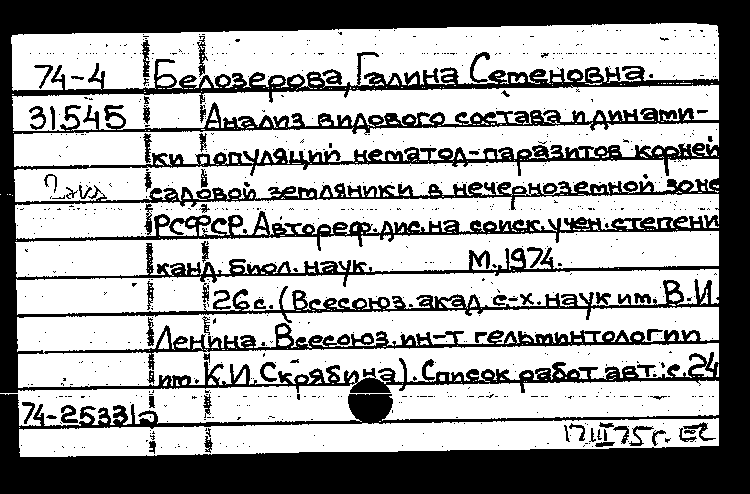 74-4 Белозерова, Галина Семеновна.
31545 Анализ видового состава и динами-
ки популяций нематод-паразитов корней
2 экз садовой земляники в нечерноземной зоне
РСФСР. Автореф. дис. на соиск. учен. степени
канд. биол. наук. М., 1974.
26 с. (Всесоюз. акад. с-х. наук им. В.И.
Ленина. Всесоюз. ин-т гельминтологии
им. К.И. Скрябина). Список работ авт.: с. 24
74-25331
17 III 75 г.